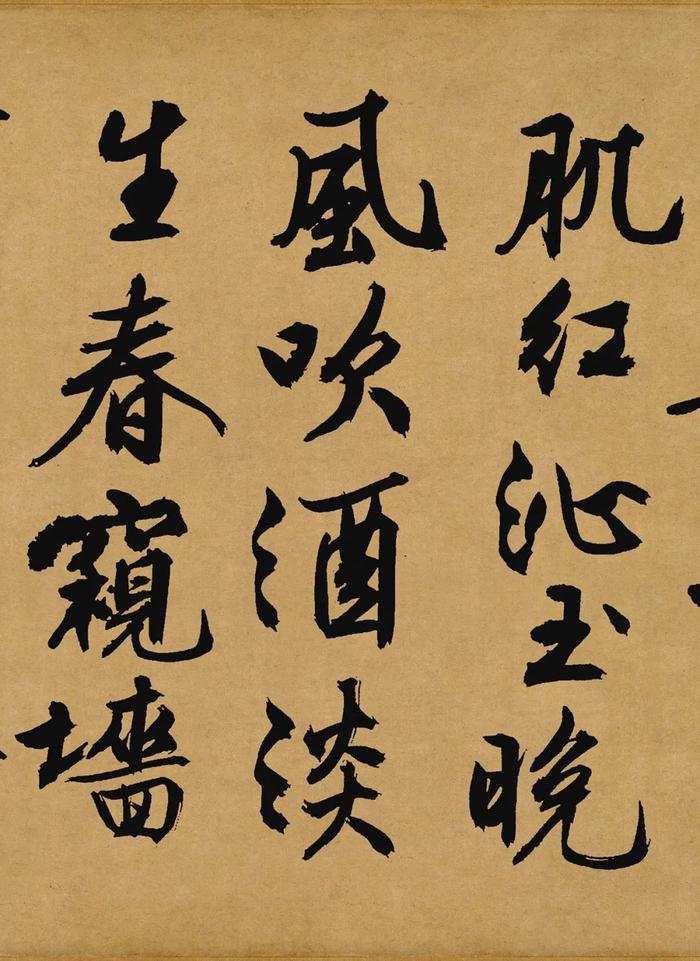 肌红沁玉晚
風吹酒淡
生春窺墙